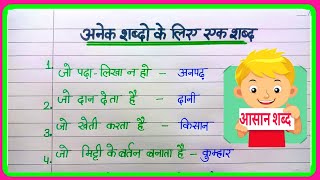 अनेक शब्दो के लिए एक शब्द
1. जो पढ़ा-लिखा न हो – अनपढ़
2. जो दान देता है – दानी
3. जो खेती करता है – किसान
4. जो मिट्टी के बर्तन बनाता है – कुम्हार
आसान शब्द